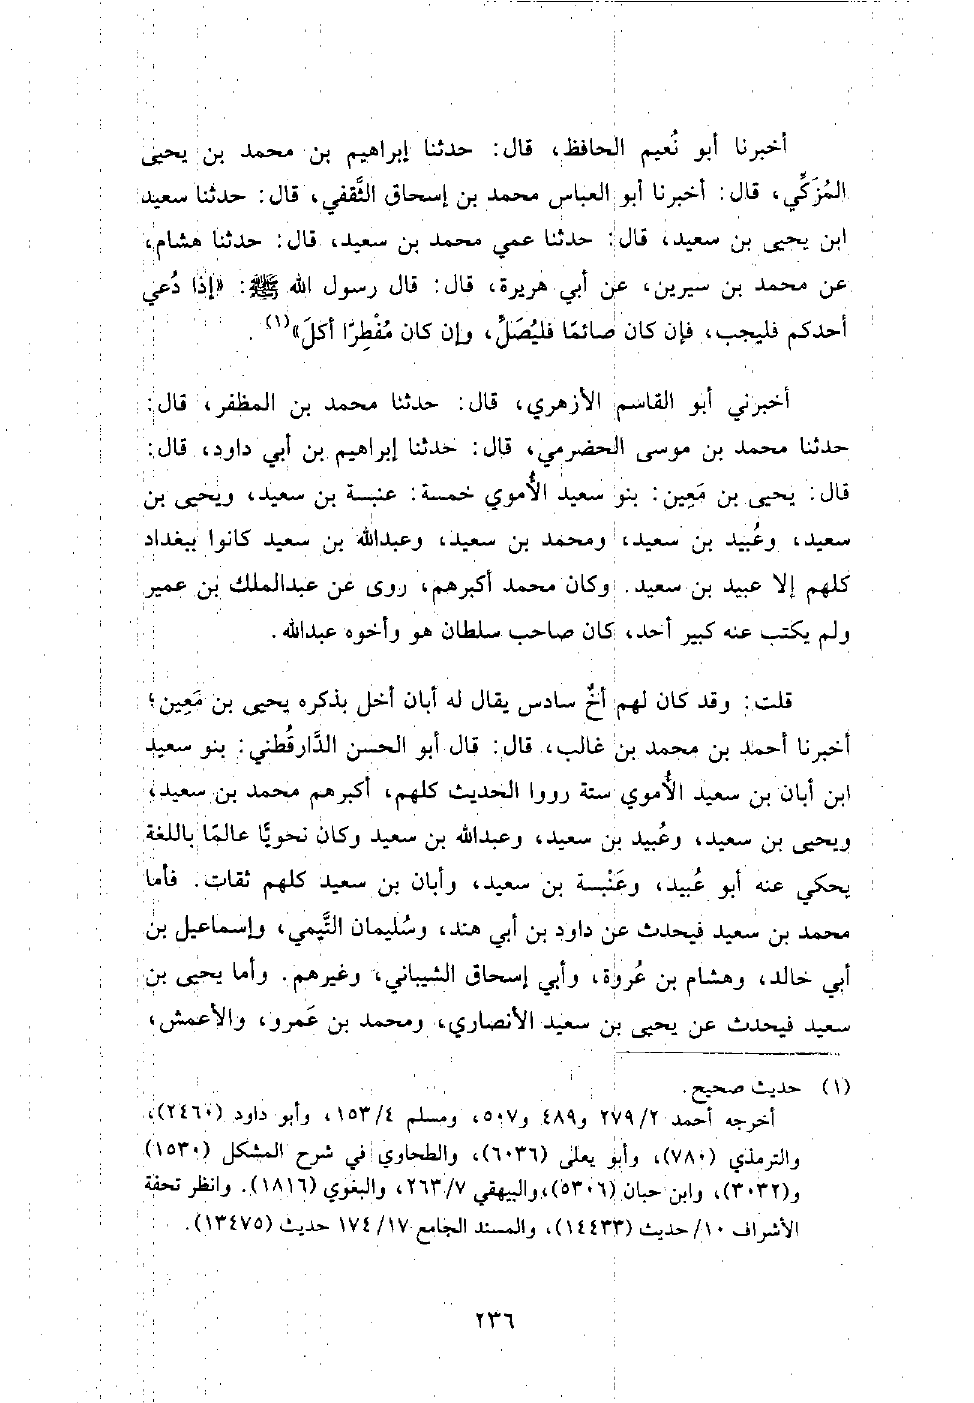 أخبرنا أبو نُعيم الحافظ، قال: حدثنا إبراهيم بن محمد بن يحيى
المُزَكِّي، قال: أخبرنا أبو العباس محمد بن إسحاق الثَّقفي، قال: حدثنا سعيد
ابن يحيى بن سعيد، قال: حدثنا عمي محمد بن سعيد، قال: حدثنا هشام،
عن محمد بن سيرين، عن أبي هريرة، قال: قال رسول الله ﷺ: «إذا دُعي
أحدكم فليجب، فإن كان صائمًا فليُصَلِّ، وإن كان مُفْطِرًا أكلَ»(١) .
أخبرني أبو القاسم الأزهري، قال: حدثنا محمد بن المظفر، قال:
حدثنا محمد بن موسى الحضرمي، قال: حدثنا إبراهيم بن أبي داود، قال:
قال: يحيى بن مَعِين: بنو سعيد الأُموي خمسة: عنبسة بن سعيد، ويحيى بن
سعيد، وعُبيد بن سعيد، ومحمد بن سعيد، وعبدالله بن سعيد كانوا ببغداد
كلهم إلا عبيد بن سعيد. وكان محمد أكبرهم، روى عن عبدالملك بن عمير
ولم يكتب عنه كبير أحد، كان صاحب سلطان هو وأخوه عبدالله.
قلت: وقد كان لهم أخٌ سادس يقال له أبان أخل بذكره يحيى بن مَعِين؛
أخبرنا أحمد بن محمد بن غالب، قال: قال أبو الحسن الدَّارقُطني: بنو سعيد
ابن أبان بن سعيد الأُموي ستة رووا الحديث كلهم، أكبرهم محمد بن سعيد،
ويحيى بن سعيد، وعُبيد بن سعيد، وعبدالله بن سعيد وكان نحويًا عالمًا باللغة
يحكي عنه أبو عُبيد، وعَنْبسة بن سعيد، وأبان بن سعيد كلهم ثقات. فأما
محمد بن سعيد فيحدث عن داود بن أبي هند، وسُليمان التَّيمي، وإسماعيل بن
أبي خالد، وهشام بن عُروة، وأبي إسحاق الشيباني، وغيرهم. وأما يحيى بن
سعيد فيحدث عن يحيى بن سعيد الأنصاري، ومحمد بن عَمرو، والأعمش،
(١) حديث صحيح.
أخرجه أحمد ٢/ ٢٧٩ و٤٨٩ و٥٠٧، ومسلم ٤/ ١٥٣، وأبو داود (٢٤٦٠)،
والترمذي (٧٨٠)، وأبو يعلى (٦٠٣٦)، والطحاوي في شرح المشكل (١٥٣٠)
و(٣٠٣٢)، وابن حبان (٥٣٠٦)،والبيهقي ٧/ ٢٦٣، والبغوي (١٨١٦). وانظر تحفة
الأشراف ١٠/ حديث (١٤٤٣٣)، والمسند الجامع ١٧/ ١٧٤ حديث (١٣٤٧٥).
٢٣٦